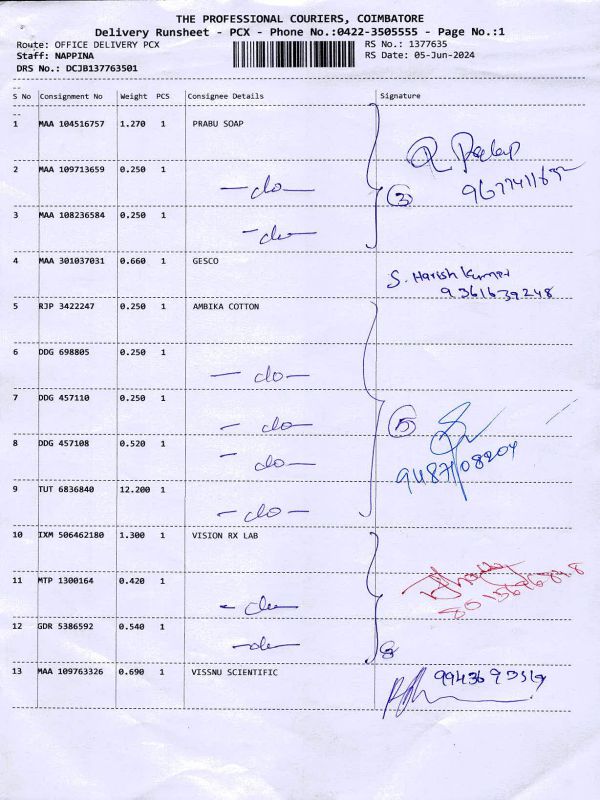 THE PROFESSIONAL COURIERS, COIMBATORE
Delivery Runsheet - PCX - Phone No.:0422-3505555 - Page No.:1
Route: OFFICE DELIVERY PCX RS No.: 1377635
Staff: NAPPINA RS Date: 05-Jun-2024
DRS No.: DCJB137763501
S No Consignment No Weight PCS Consignee Details Signature
1 MAA 104516757 1.270 1 PRABU SOAP
2 MAA 109713659 0.250 1 -do-
3 MAA 108236584 0.250 1 -do-
3
4 MAA 301037031 0.660 1 GESCO S. Harish Kumar
9361639248
5 RJP 3422247 0.250 1 AMBIKA COTTON
6 DDG 698805 0.250 1 -do-
7 DDG 457110 0.250 1 -do-
5
8 DDG 457108 0.520 1 -do-
9487108204
9 TUT 6836840 12.200 1 -do-
10 IXM 506462180 1.300 1 VISION RX LAB
11 MTP 1300164 0.420 1 -do-
12 GDR 5386592 0.540 1 -do-
13 MAA 109763326 0.690 1 VISSNU SCIENTIFIC